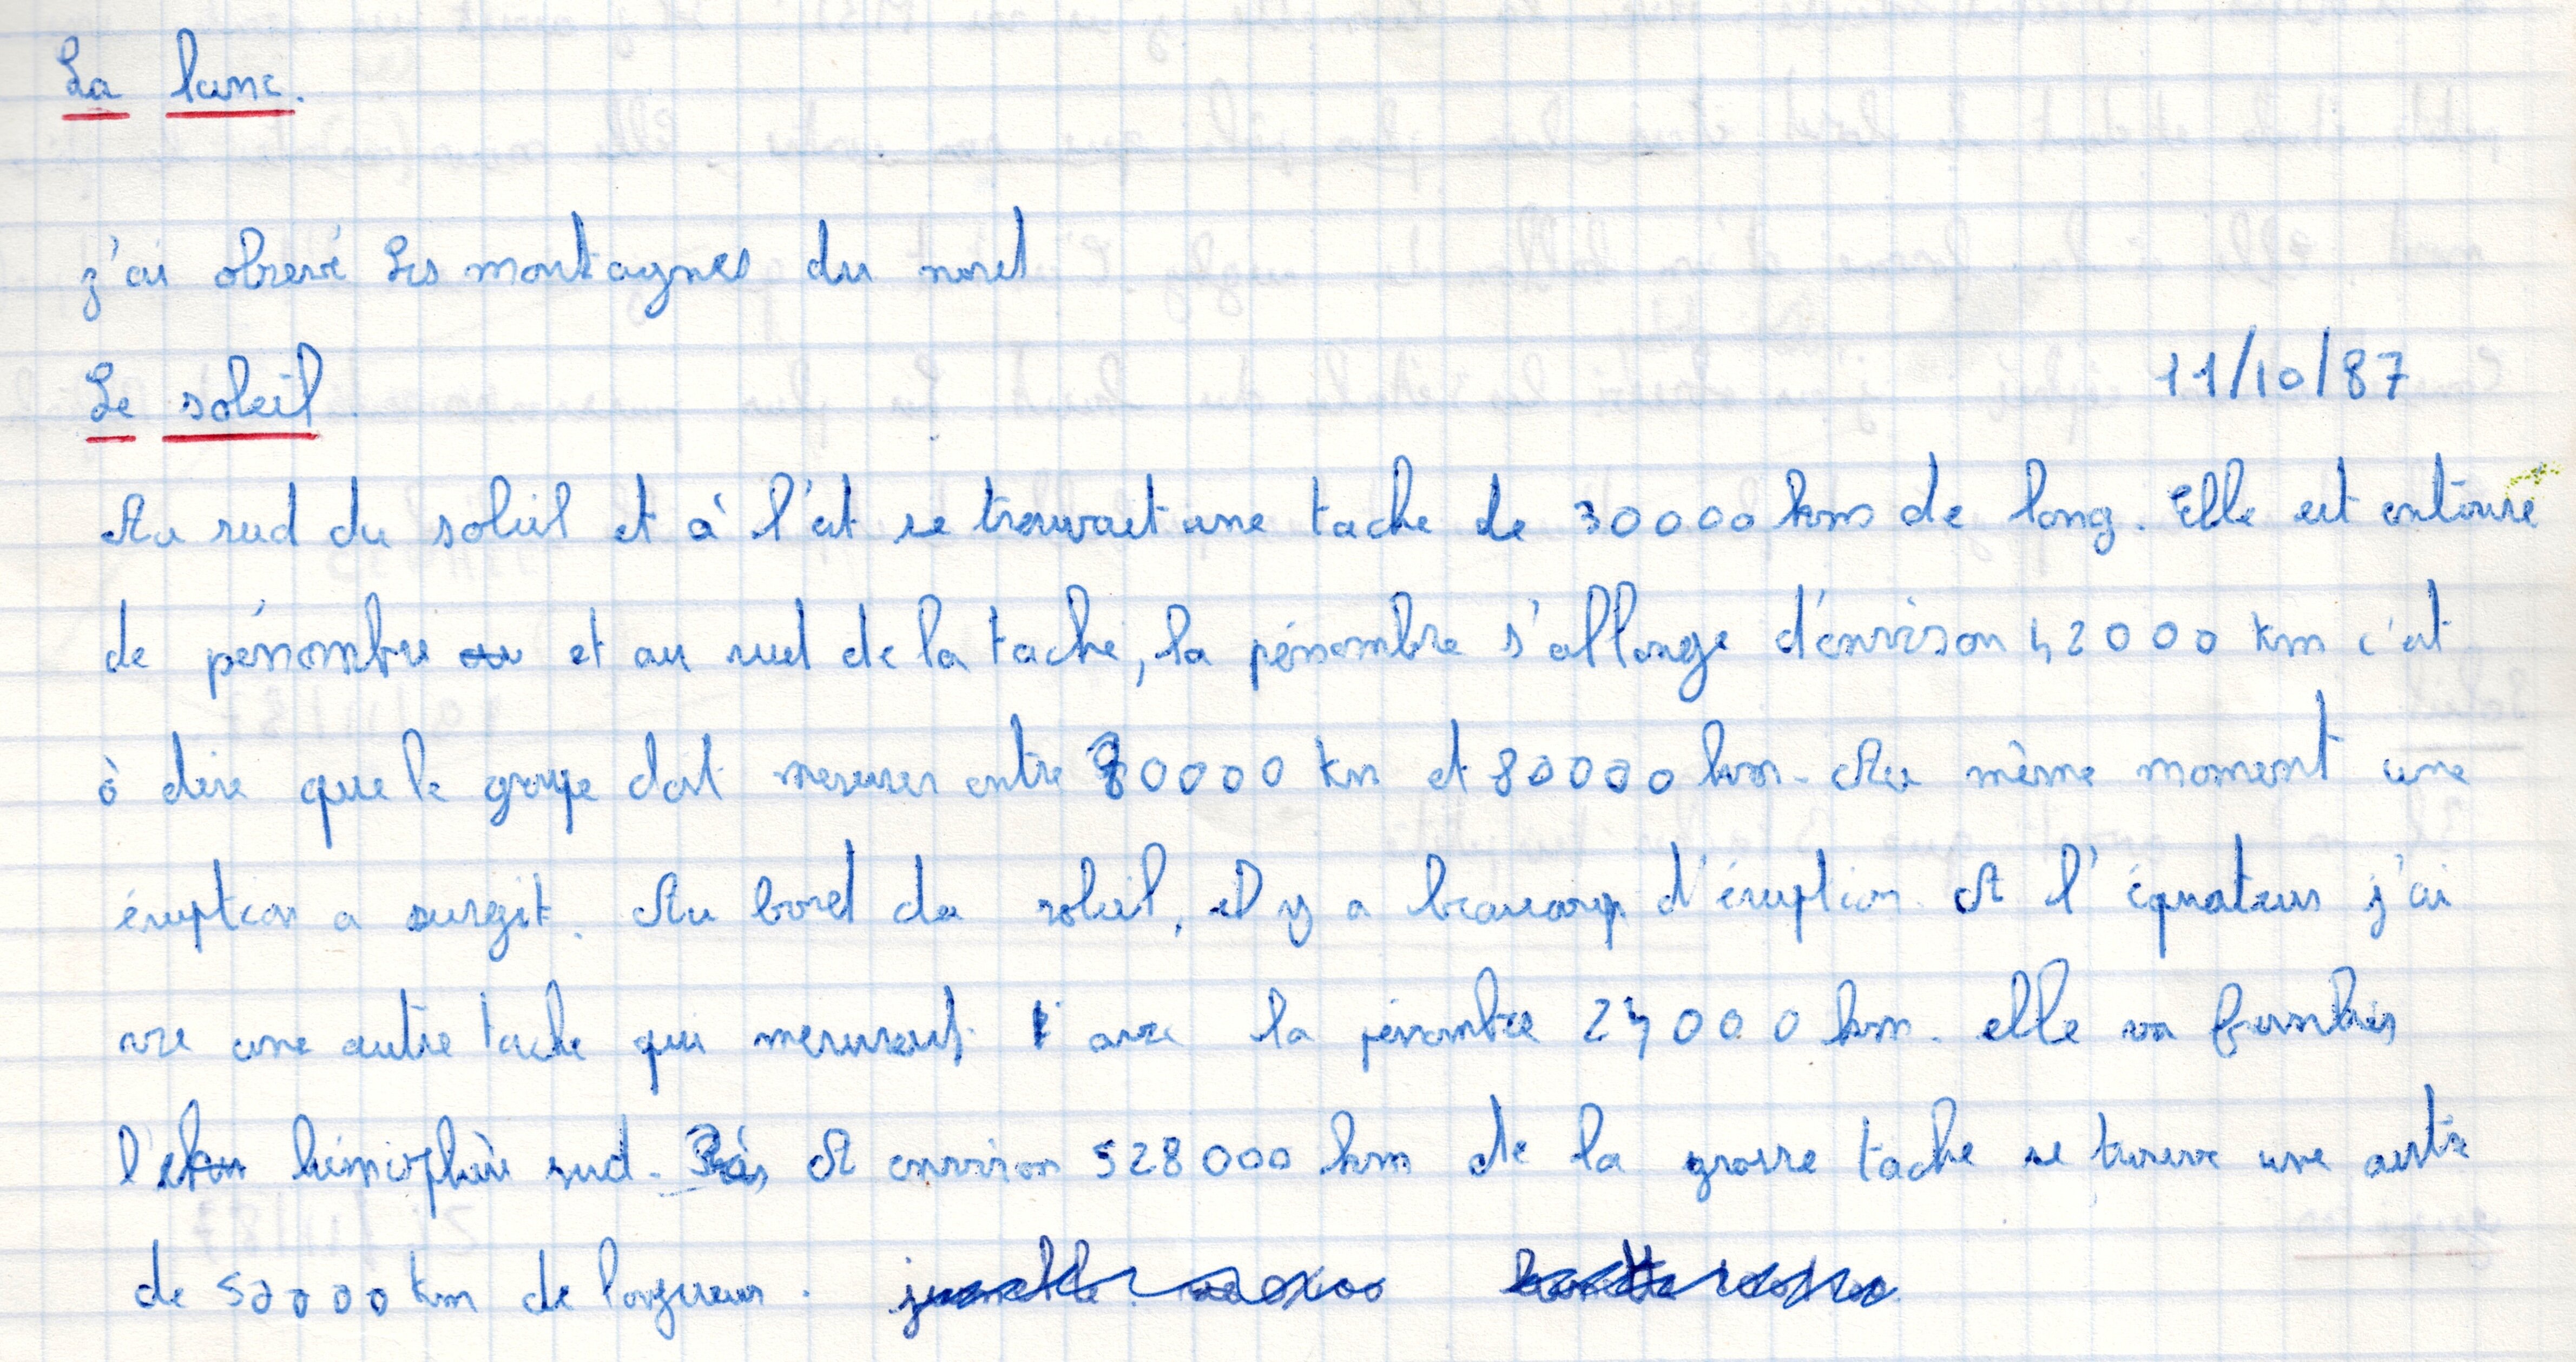 La lune.
j'ai observé Les montagnes du nord
Le soleil 11/10/87
Au sud du soleil et à l'est se trouvait une tache de 30000 km de long. Elle est entouré
de pénombre et au sud de la tache, la pénombre s'allonge d'environ 42000 km c'est
à dire que le groupe doit mesurer entre 0000 km et 80000 km. Au même moment une
éruption a surgit. Au bord du soleil, il y a beaucoup d'éruption. A l'équateur j'ai
vu une autre tache qui mesurait avec la pénombre 24000 km. elle va
l' hémisphère sud. A environ 528000 km de la grosse tache se trouve une autre
de 50000 km de longueur.